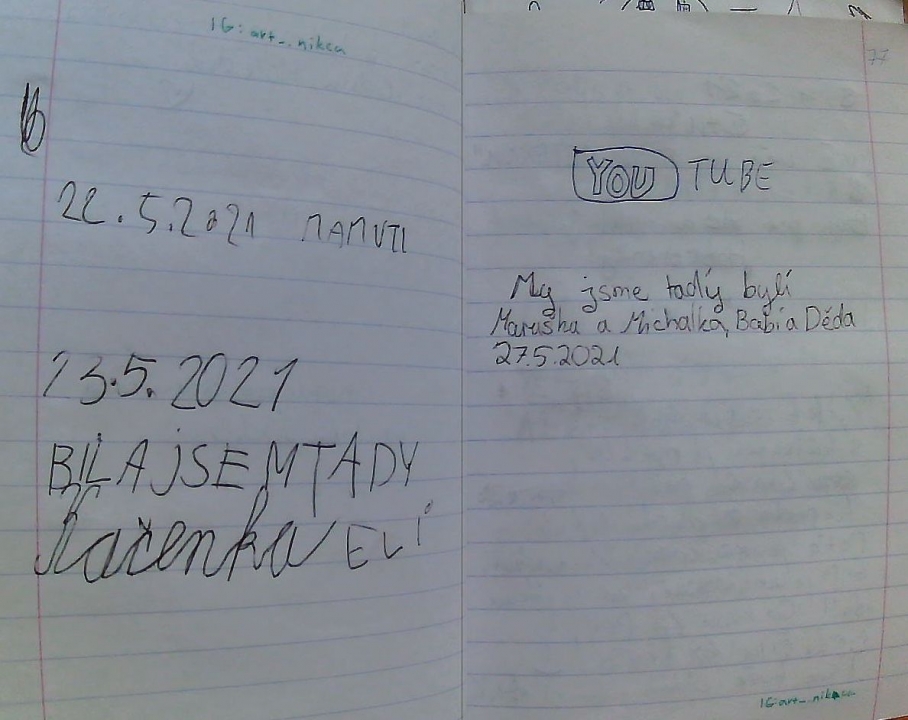 IG: art_nikca
22.5.2021 MAMUTI
23.5.2021
BILA JSEM TADY
Kačenka ELÍ
77
YOU TUBE
My jsme tadíy bylí
Maruška a Michalka, Babi a Děda
27.5.2021
IG: art_nikca